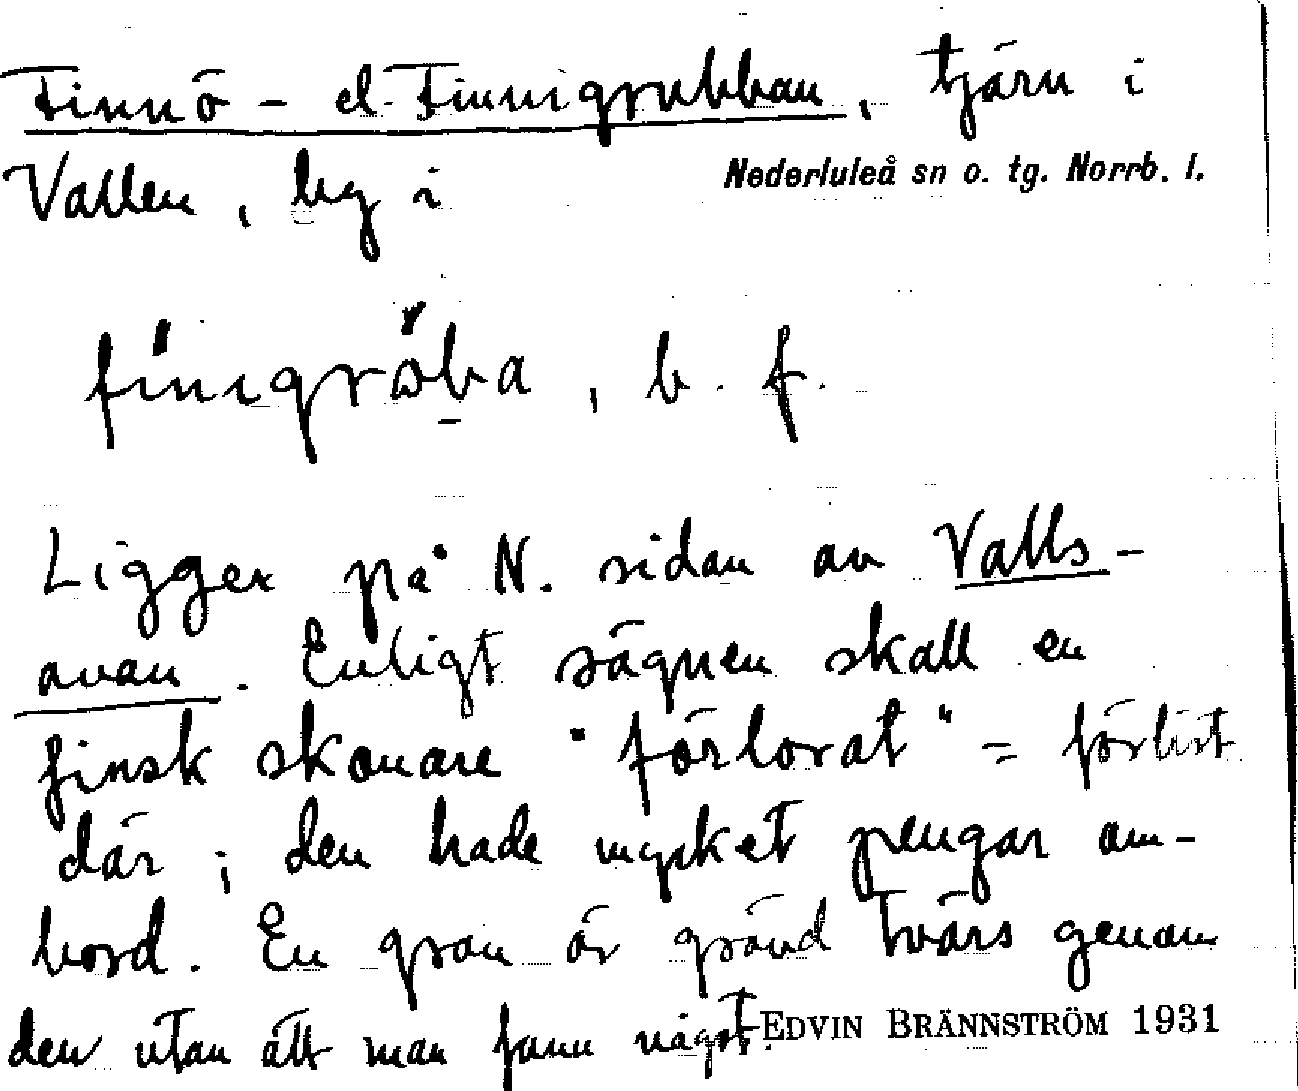 Finnö- el. Finnigrubban, tjärn i
Vallen, by i Nederluleå sn o. tg. Norrb. l.
finigröba, b. f.
Ligger på N. sidan av Valls-
avan. Enligt sägnen skall en
finsk skonare "förlorat" = förlist
där; den hade mycket pengar om-
bord. En gran är grävd tvärs genom
den utan att man fann något.
EDVIN BRÄNNSTRÖM 1931